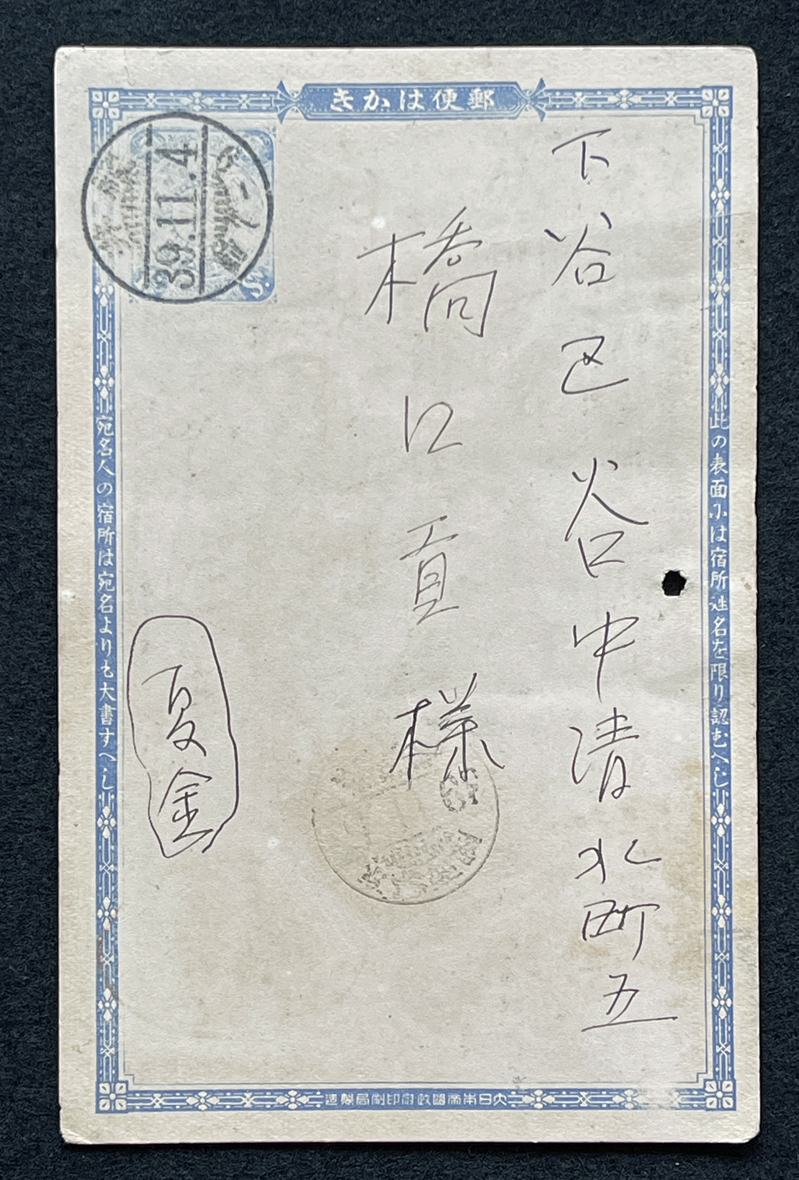 郵便はかき
此の表面には宿所姓名を限り認むへし
下谷区谷中清水町五
橋口貢様
夏金
宛名人の宿所は宛名よりも大書すへし
39.11.4
大日本帝國政府印刷局製造